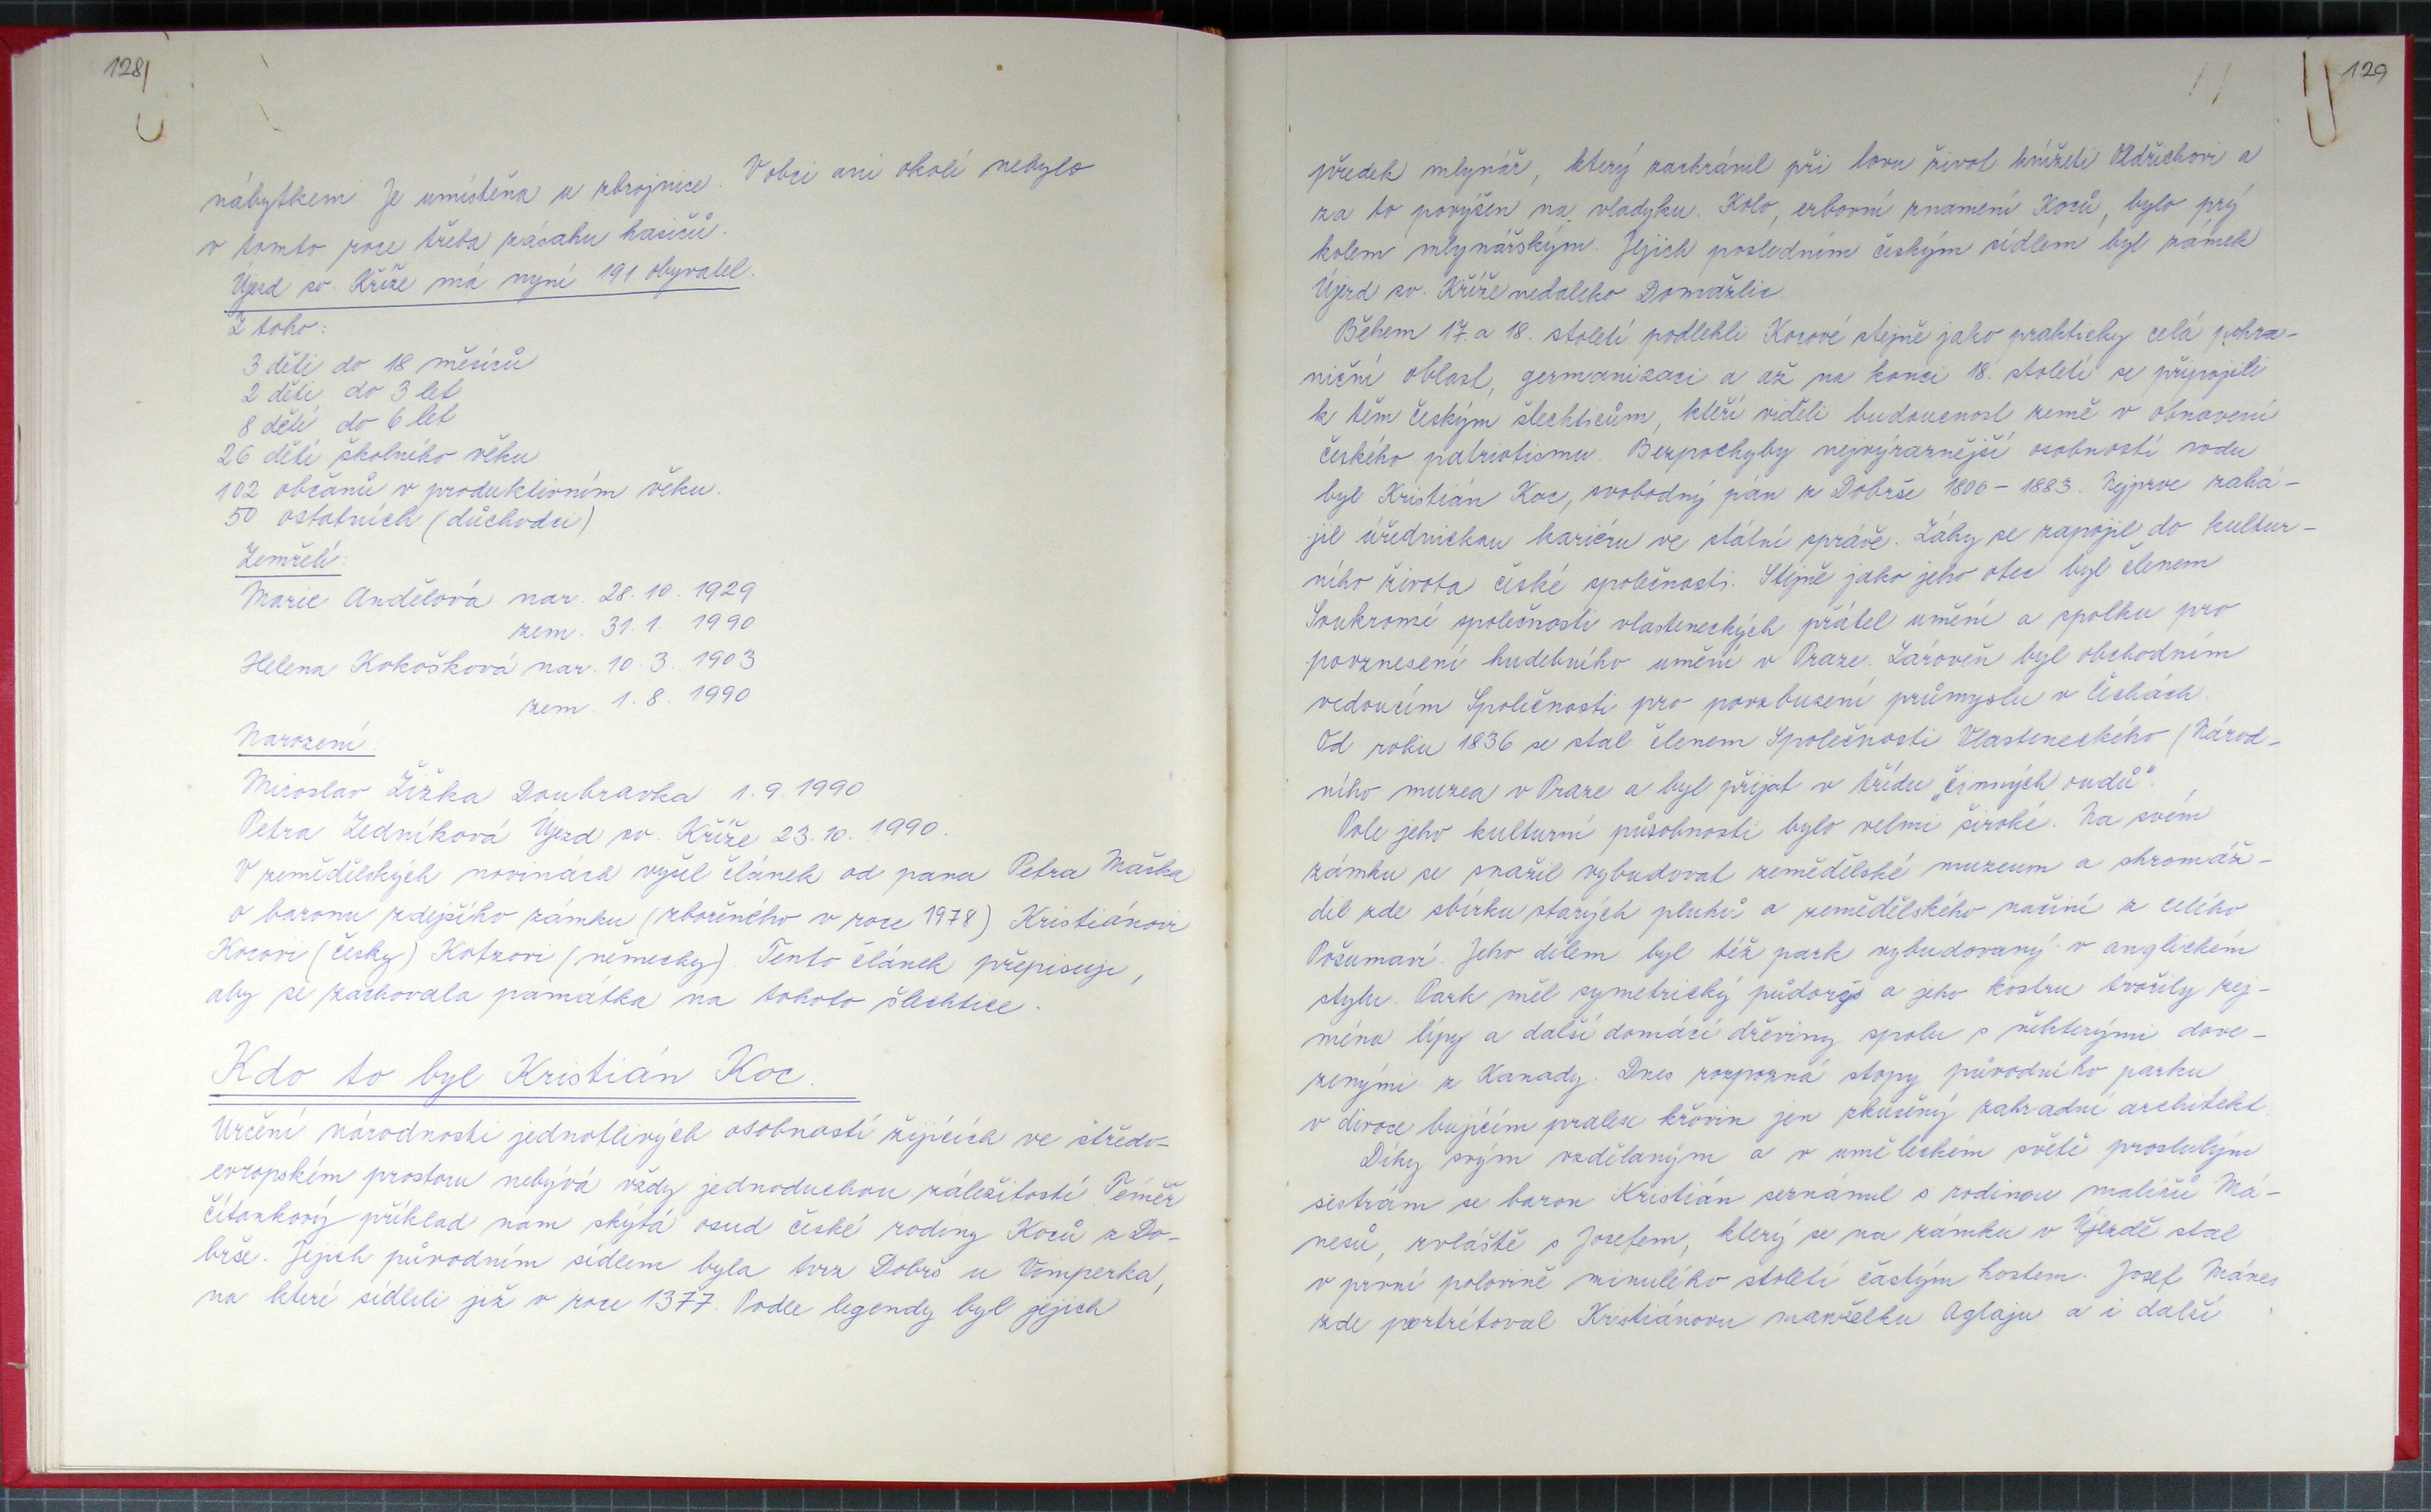 128
nábytkem Je umístěna u zbrojnice. V obci ani okolí nebylo
v tomto roce třeba zásahu hasičů.
Újezd sv. Kříže má nyní 191 obyvatel.
Z toho:
3 děti do 18 měsíců
2 děti do 3 let
8 dětí do 6 let
26 dětí školního věku
102 občanů v produktivním věku.
50 ostatních (důchodci)
Zemřelí:
Marie Andělová nar. 28. 10. 1929
zem. 31. 1. 1990
Helena Kokošková nar. 10. 3. 1903
zem. 1. 8. 1990
Narození:
Miroslav Žižka Doubravka 1. 9. 1990
Petra Zedníková Újezd sv. Kříže 23. 10. 1990.
V zemědělských novinách vyšel článek od pana Petra Maška
o baronu zdejšího zámku (zbořeného v roce 1978) Kristiánovi
Kocovi (česky) Kotzovi (německy). Tento článek přepisuji,
aby se zachovala památka na tohoto šlechtice.
Kdo to byl Kristián Koc.
Určení národnosti jednotlivých osobností žijících ve středo-
evropském prostoru nebývá vždy jednoduchou záležitostí. Téměř
čítankový příklad nám skýtá osud české rodiny Koců z Do-
brše. Jejich původním sídlem byla tvrz Dobrš u Vimperka,
na které sídleli již v roce 1377. Podle legendy byl jejich
129
předek mlynář, který zachránil při lovu život knížeti Oldřichovi a
za to povýšen na vladyku. Kolo, erbovní znamení Koců, bylo prý
kolem mlynářským. Jejich posledním českým sídlem byl zámek
Újezd sv. Kříže nedaleko Domažlic.
Během 17. a 18. století podlehli Kocové stejně jako prakticky celá pohra-
niční oblast, germanizaci a až na konci 18. století se připojili
k těm českým šlechticům, kteří viděli budoucnost země v obnovení
českého patriotismu. Bezpochyby nejvýraznější osobností rodu
byl Kristián Koc, svobodný pán z Dobrše 1806 - 1883. Nejprve zahá-
jil úřednickou kariéru ve státní správě. Záhy se zapojil do kultur-
ního života české společnosti. Stejně jako jeho otec byl členem
Soukromé společnosti vlasteneckých přátel umění a spolku pro
povznesení hudebního umění v Praze. Zároveň byl obchodním
vedoucím Společnosti pro povzbuzení průmyslu v Čechách.
Od roku 1836 se stal členem Společnosti Vlasteneckého (Národ-
ního muzea v Praze a byl přijat v třídu „činných oudů".
Pole jeho kulturní působnosti bylo velmi široké. Na svém
zámku se snažil vybudovat zemědělské muzeum a shromáž-
dil zde sbírku starých pluhů a zemědělského načiní z celého
Pošumaví. Jeho dílem byl též park vybudovaný v anglickém
stylu. Park měl symetrický půdorys a jeho kostru tvořily zej-
ména lípy a další domácí dřeviny spolu s některými dove-
zenými z Kanady. Dnes rozpozná stopy původního parku
v divoce bujícím pralese křovin jen zkušený zahradní architekt.
Díky svým vzdělaným a v uměleckém světě proslulým
sestrám se baron Kristián seznámil s rodinou malířů Má-
nesů, zvláště s Josefem, který se na zámku v Újezdě stal
v první polovině minulého století častým hostem. Josef Mánes
zde portrétoval Kristiánovu manželku Aglaju a i další